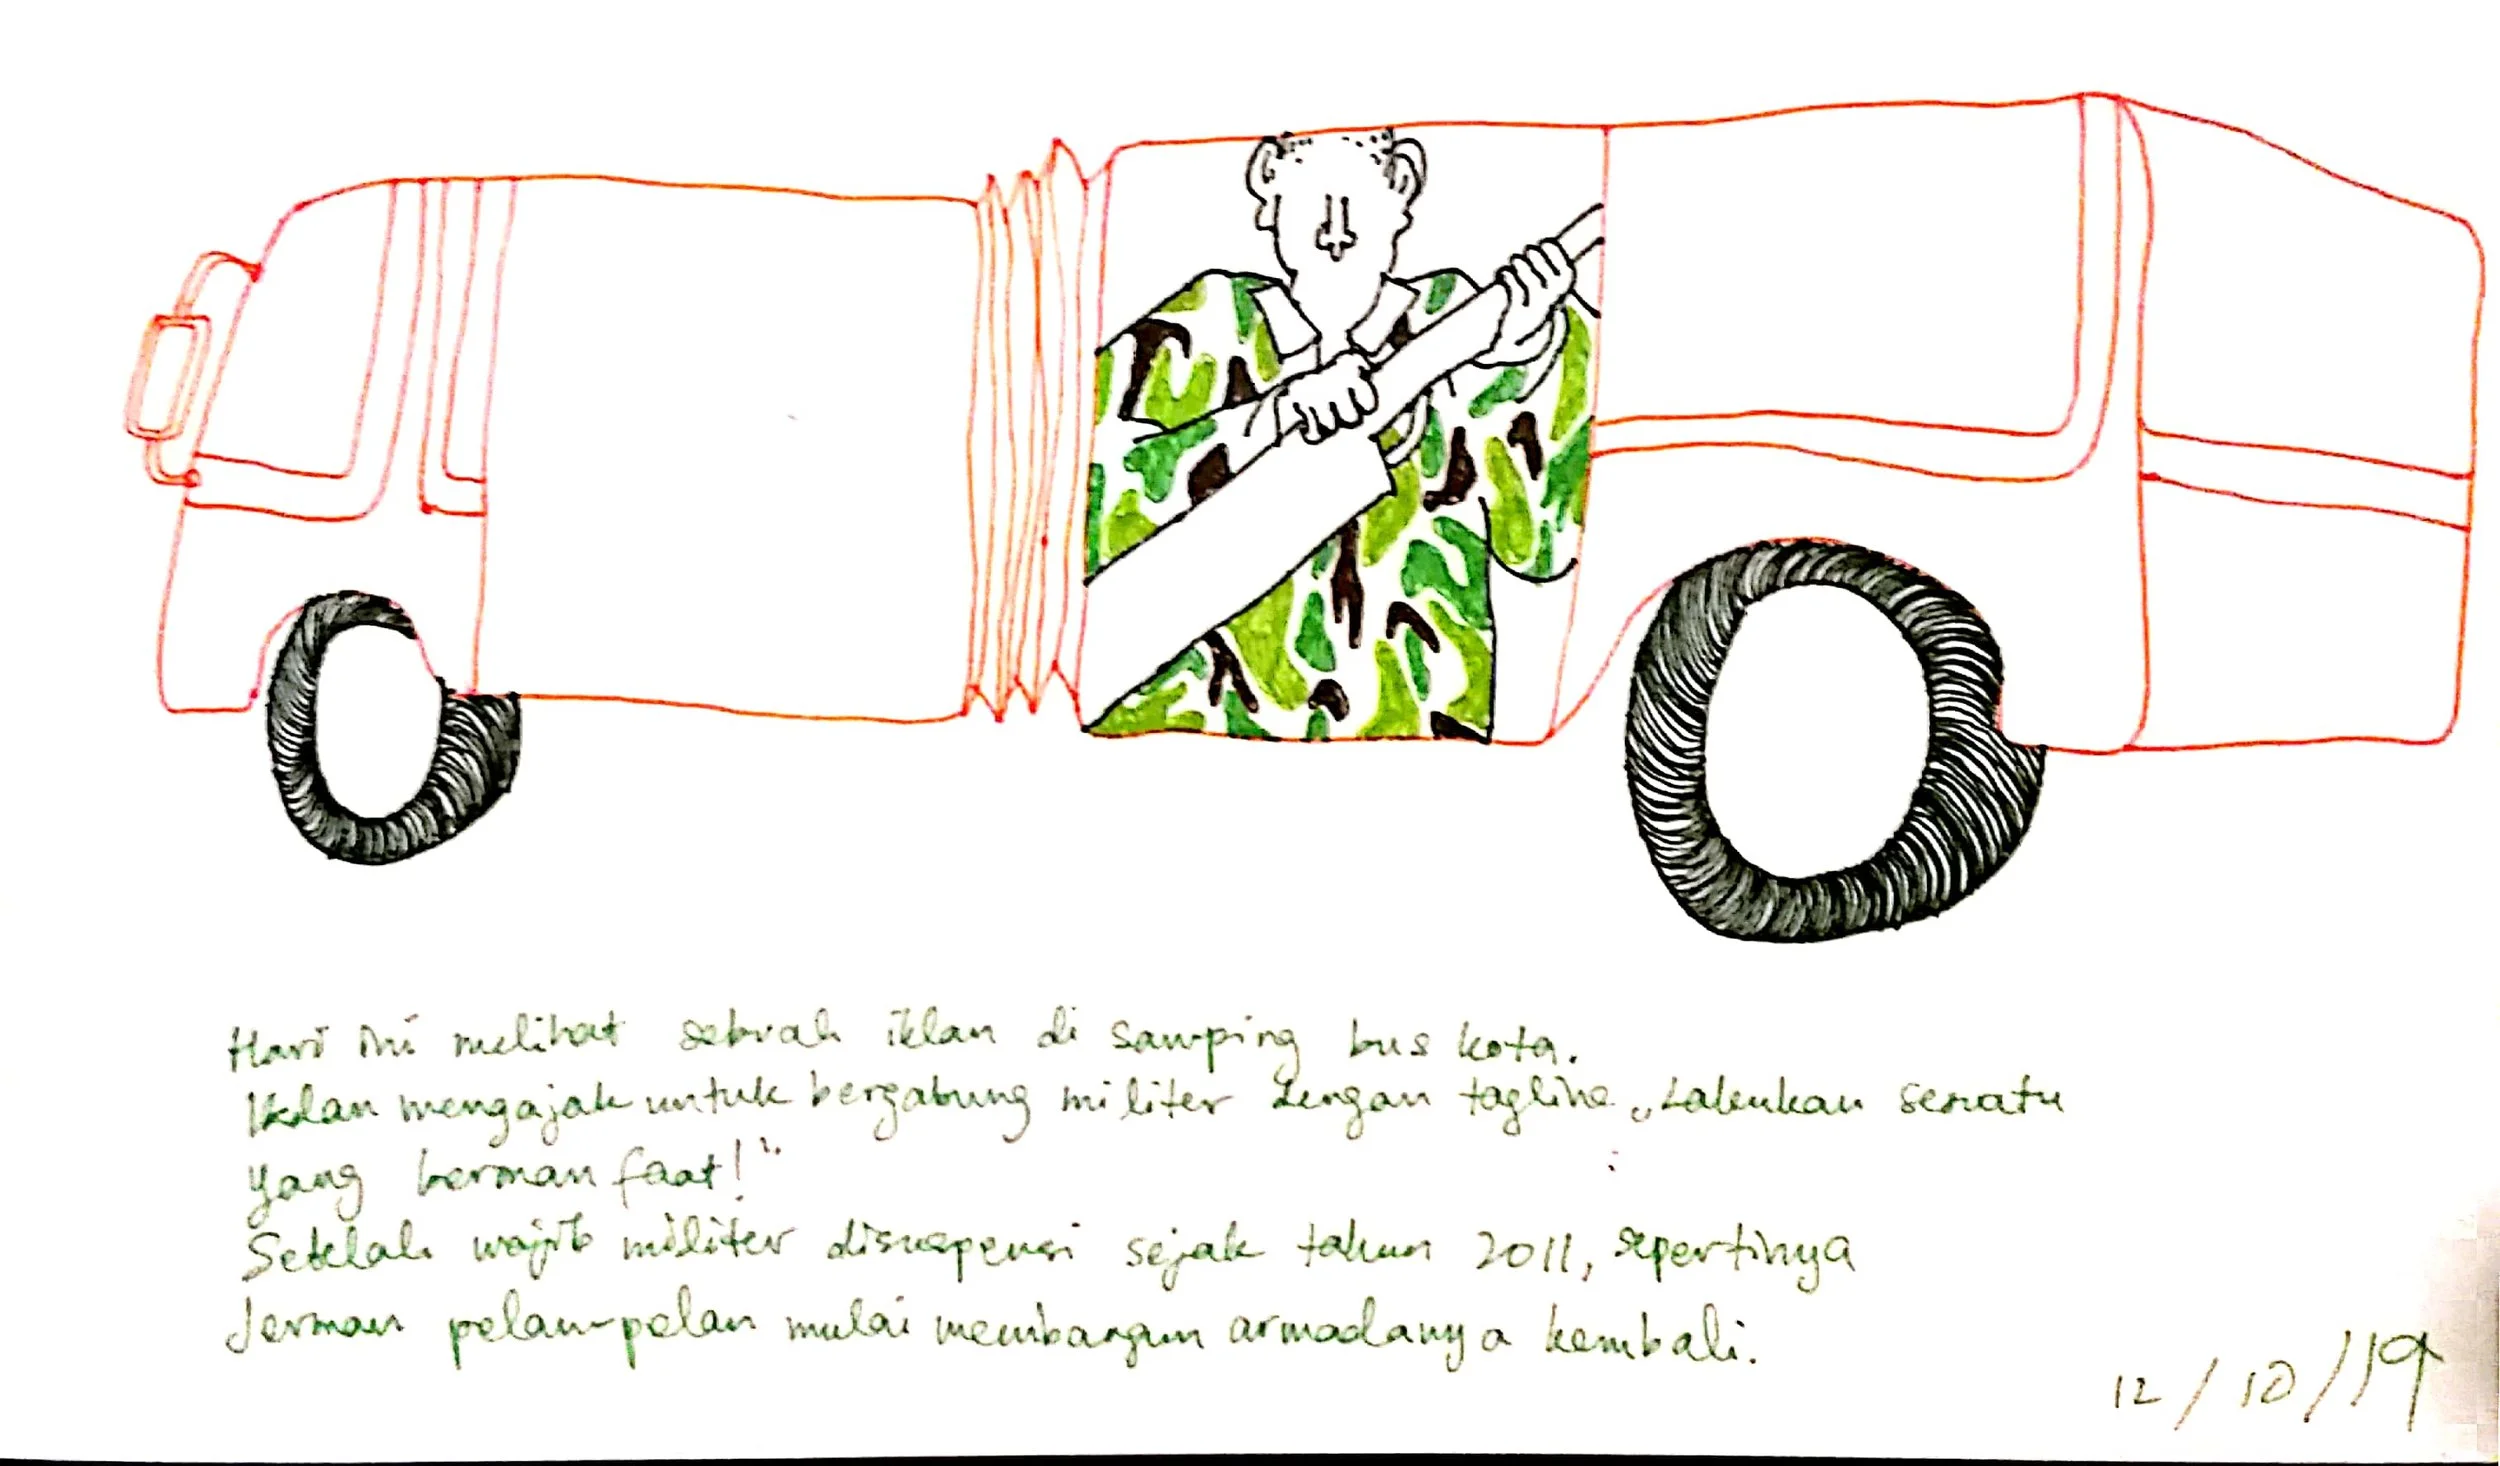 Hari ini melihat sebuah iklan di samping bus kota.
Iklan mengajak untuk bergabung militer dengan tagline „Lakukan seuatu
yang bermanfaat!"
Setelah wajib militer disuspensi sejak tahun 2011, sepertinya
Jerman pelan-pelan mulai membangun armadanya kembali.
12/10/19